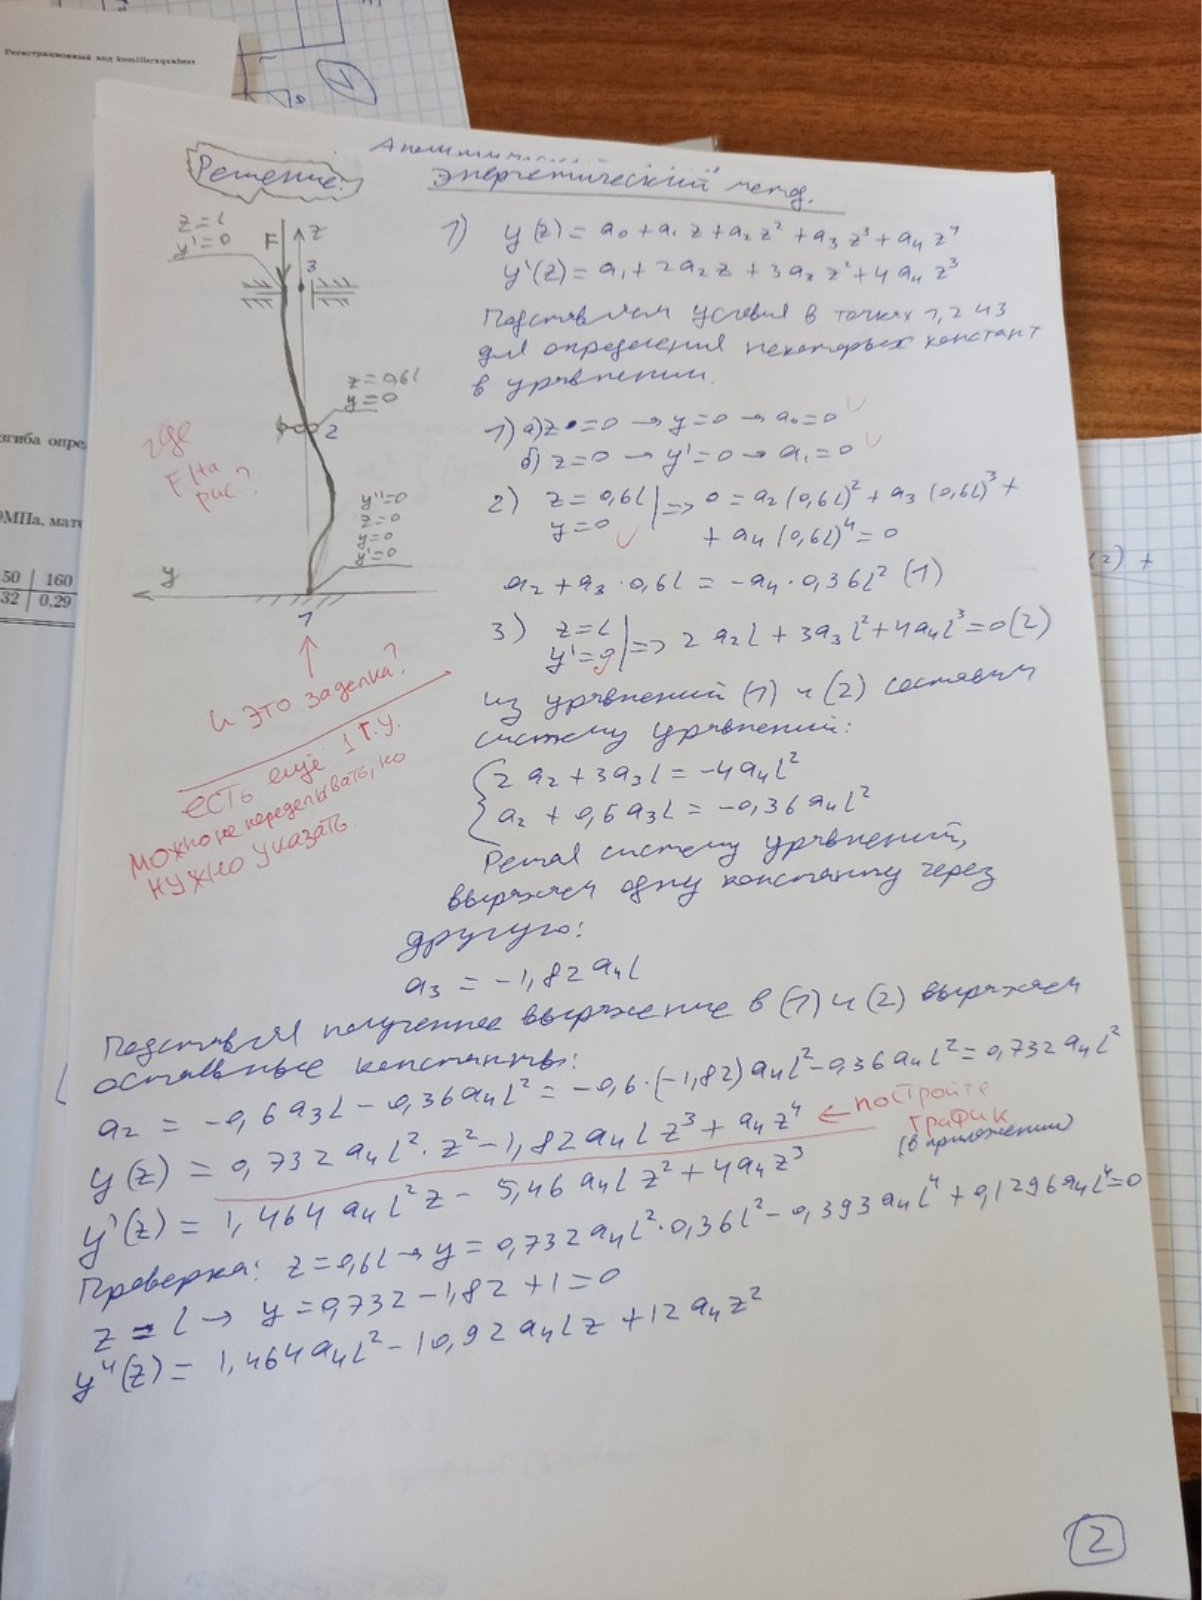 Регистрационный код
згиба опре
МПа, мат
50 160
32 0,29
Решение:
энергетический метод.
z=l
y'=0
F
z
3
z=0,6l
y=0
2
где
F на
рис?
y''=0
z=0
y=0
y'=0
y
1
и это заделка?
есть ещё 1 г.у.
можно не переделывать, но
нужно указать
1) y(z) = a₀+a₁ z+a₂ z²+a₃ z³+a₄ z⁴
y'(z) = a₁+2a₂z+3a₃ z²+4a₄ z³
Подставляем условия в точках 1,2 и 3
для определения некоторых констант
в уравнении.
1) а) z=0 → y=0 → a₀=0
б) z=0 → y'=0 → a₁=0
2) z=0,6l
y=0
=> 0=a₂(0,6l)²+a₃(0,6l)³+
+a₄(0,6l)⁴=0
a₂+a₃·0,6l=-a₄·0,36l² (1)
3) z=l
y'=0
=> 2a₂l+3a₃l²+4a₄l³=0 (2)
из уравнений (1) и (2) составим
систему уравнений:
2a₂+3a₃l=-4a₄l²
a₂+0,6a₃l=-0,36a₄l²
Решая систему уравнений,
выражаем одну константу через
другую:
a₃=-1,82a₄l
Подставляя полученное выражение в (1) и (2) выражаем
остальные константы:
a₂=-0,6a₃l-0,36a₄l²=-0,6·(-1,82)a₄l²-0,36a₄l²=0,732a₄l²
y(z)=0,732a₄l²·z²-1,82a₄lz³+a₄z⁴ ← постройте
график
(в приложении)
y'(z)=1,464a₄l²z-5,46a₄lz²+4a₄z³
Проверка: z=0,6l → y=0,732a₄l²·0,36l²-0,393a₄l⁴+0,1296a₄l⁴=0
z=l → y=0,732-1,82+1=0
y''(z)=1,464a₄l²-10,92a₄lz+12a₄z²
2
2) +